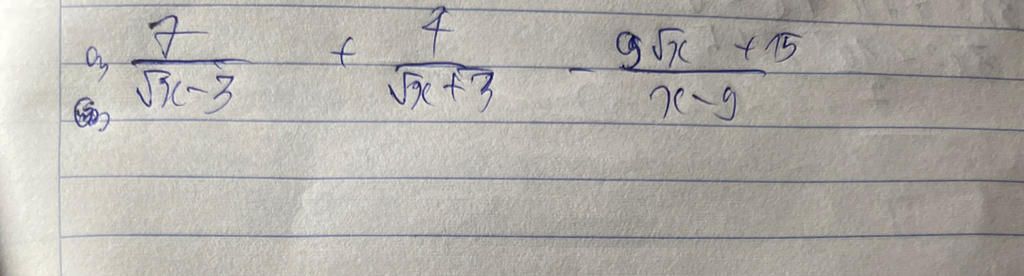 a, 7/(√x-3) + 7/(√x+3) - (9√x +15)/(x-9)